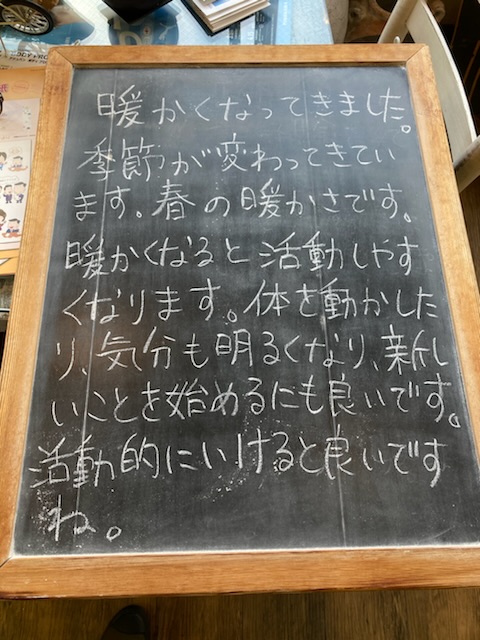 暖かくなってきました。
季節が変わってきてい
ます。春の暖かさです。
暖かくなると活動しやす
くなります。体を動かした
り、気分も明るくなり、新し
いことを始めるにも良いです。
活動的にいけると良いです
ね。